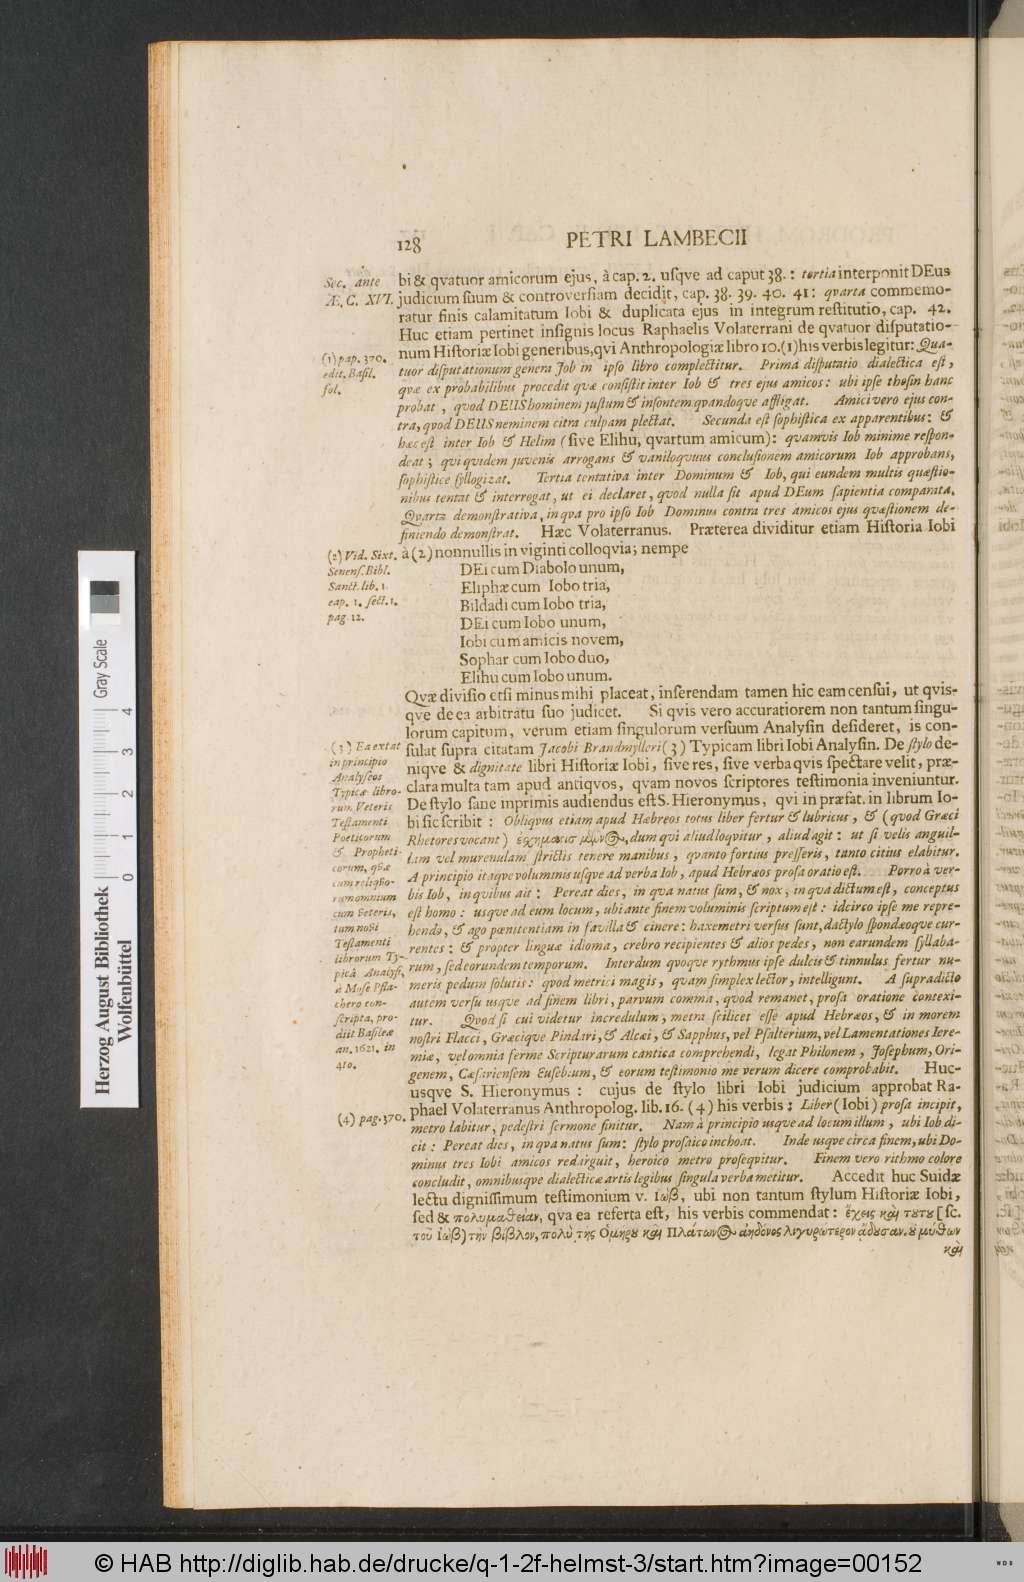 128 PETRI LAMBECII
Sec. ante
Æ. C. XVI.
bi & qvatuor amicorum ejus, à cap. 2. usqve ad caput 38. : tertia interponit DEus
judicium suum & controversiam decidit, cap. 38. 39. 40. 41: qvarta commemo-
ratur finis calamitatum Iobi & duplicata ejus in integrum restitutio, cap. 42.
Huc etiam pertinet insignis locus Raphaelis Volaterrani de qvatuor disputatio-
num Historiæ Iobi generibus, qvi Anthropologiæ libro 10. (1) his verbis legitur: Qua-
(1) pap. 370.
edit. Basil.
fol.
tuor disputationum genera Job in ipso libro complectitur. Prima disputatio dialectica est,
qvæ ex probabilibus procedit qvæ consistit inter Iob & tres ejus amicos: ubi ipse thesin hanc
probat, qvod DEUS hominem justum & insontem qvandoqve affligat. Amici vero ejus con-
tra, qvod DEUS neminem citra culpam plectat. Secunda est sophistica ex apparentibus: &
hæc est inter Iob & Helim (sive Elihu, qvartum amicum): qvamvis Iob minime respon-
deat; qvi qvidem juvenis arrogans & vaniloqvuus conclusionem amicorum Iob approbans,
sophistice syllogizat. Tertia tentativa inter Dominum & Iob, qui eundem multis quæstio-
nibus tentat & interrogat, ut ei declaret, qvod nulla sit apud DEum sapientia comparata.
Qvarta demonstrativa, in qva pro ipso Iob Dominus contra tres amicos ejus qvæstionem de-
finiendo demonstrat. Hæc Volaterranus. Præterea dividitur etiam Historia Iobi
à (2) nonnullis in viginti colloqvia; nempe
(2) Vid. Sixt.
Senens. Bibl.
Sanct. lib. 1.
cap. 1. sect. 1.
pag. 12.
DEi cum Diabolo unum,
Eliphæ cum Iobo tria,
Bildadi cum Iobo tria,
DEi cum Iobo unum,
Iobi cum amicis novem,
Sophar cum Iobo duo,
Elihu cum Iobo unum.
Qvæ divisio etsi minus mihi placeat, inserendam tamen hic eam censui, ut qvis-
qve de ea arbitratu suo judicet. Si qvis vero accuratiorem non tantum singu-
lorum capitum, verum etiam singulorum versuum Analysin desideret, is con-
sulat supra citatam Jacobi Brandmylleri (3) Typicam libri Iobi Analysin. De stylo de-
niqve & dignitate libri Historiæ Iobi, sive res, sive verba qvis spectare velit, præ-
clara multa tam apud antiqvos, qvam novos scriptores testimonia inveniuntur.
(3) Ea extat
in principio
Analyseos
Typicæ libro-
rum Veteris
Testamenti
Poeticorum
& Propheti-
corum, qvæ
cum reliqvo-
rum omnium
cum veteris,
tum novi
Testamenti
librorum Ty-
pica Analysi,
à Mose Pfla-
chero con-
scripta, pro-
diit Basileæ
an. 1621. in
4to.
De stylo sane inprimis audiendus est S. Hieronymus, qvi in præfat. in librum Io-
bi sic scribit : Obliqvus etiam apud Hæbreos totus liber fertur & lubricus, & (qvod Græci
Rhetores vocant) dum qvi aliud loqvitur, aliud agit : ut si velis anguil-
lam vel murenulam strictis tenere manibus, qvanto fortius presseris, tanto citius elabitur.
A principio itaqve voluminis usqve ad verba Iob, apud Hebræos prosa oratio est. Porro à ver-
bis Iob, in qvibus ait : Pereat dies, in qva natus sum, & nox, in qva dictum est, conceptus
est homo : usqve ad eum locum, ubi ante finem voluminis scriptum est : idcirco ipse me repre-
hendo, & ago pœnitentiam in favilla & cinere: haxemetri versus sunt, dactylo spondæoqve cur-
rentes : & propter linguæ idioma, crebro recipientes & alios pedes, non earundem syllaba-
rum, sed eorundem temporum. Interdum qvoqve rythmus ipse dulcis & tinnulus fertur nu-
meris pedum solutis: qvod metrici magis, qvam simplex lector, intelligunt. A supradicto
autem versu usque ad finem libri, parvum comma, qvod remanet, prosa oratione contexi-
tur. Qvod si cui videtur incredulum, metra scilicet esse apud Hebræos, & in morem
nostri Flacci, Græcique Pindari, & Alcæi, & Sapphus, vel Psalterium, vel Lamentationes Iere-
miæ, vel omnia ferme Scripturarum cantica comprehendi, legat Philonem, Josephum, Ori-
genem, Cæsariensem Eusebium, & eorum testimonio me verum dicere comprobabit. Huc-
usqve S. Hieronymus : cujus de stylo libri Iobi judicium approbat Ra-
phael Volaterranus Anthropolog. lib. 16. (4) his verbis : Liber (Iobi) prosa incipit,
(4) pag. 370.
metro labitur, pedestri sermone finitur. Nam à principio usque ad locum illum, ubi Iob di-
cit : Pereat dies, in qva natus sum: stylo prosaico inchoat. Inde usqve circa finem, ubi Do-
minus tres Iobi amicos redarguit, heroico metro proseqvitur. Finem vero rithmo colore
concludit, omnibusqve dialecticæ artis legibus singula verba metitur. Accedit huc Suidæ
lectu dignissimum testimonium v. Ἰὼβ, ubi non tantum stylum Historiæ Iobi,
sed & πολυμάθειαν, qva ea referta est, his verbis commendat : ἔχεις καὶ τούτου [sc.
τοῦ Ἰὼβ] τὴν βίβλον, πολὺ τῆς Ὁμήρου καὶ Πλάτωνος ἀηδόνος λιγυρώτερον ᾄδουσαν. οὐ μύθων
καὶ
Herzog August Bibliothek
Wolfenbüttel
Gray Scale
0 1 2 3 4
© HAB http://diglib.hab.de/drucke/q-1-2f-helmst-3/start.htm?image=00152